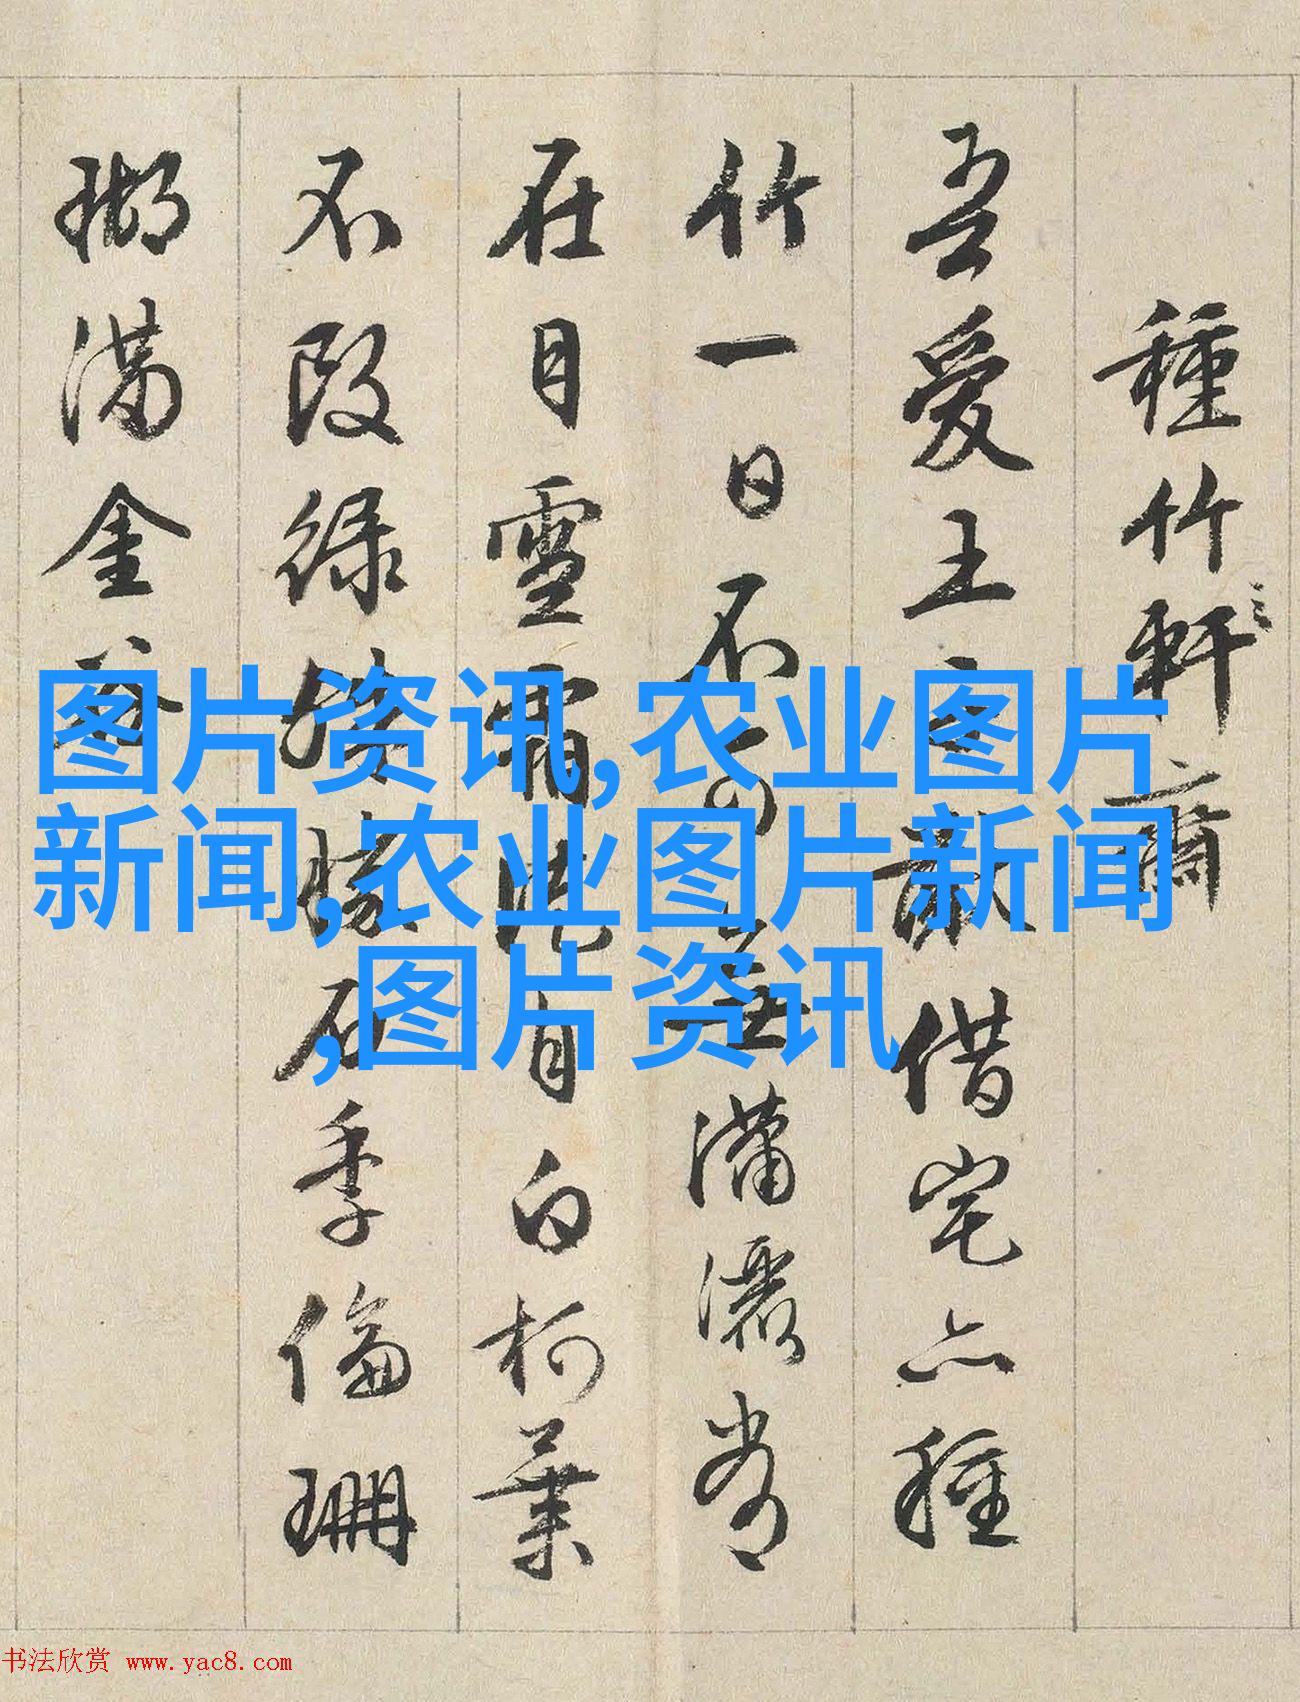 種竹軒
吾愛王子猷借宅亦種
竹一日不可無瀟灑常
在目雪霜徒自白柯葉
不改綠殊勝石季倫珊
瑚滿金谷
图片资讯,农业图片
新闻,农业图片新闻
,图片资讯
书法欣赏 www.yac8.com